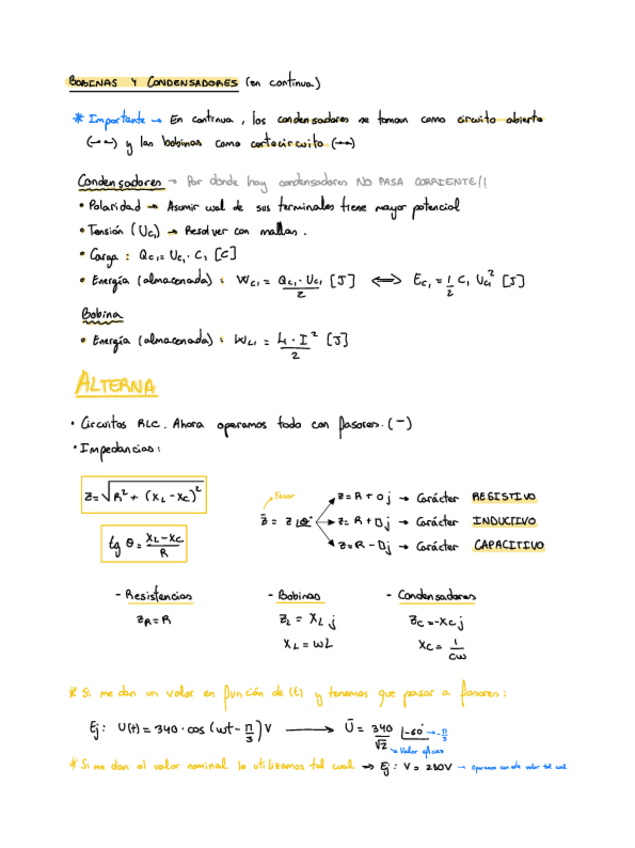 BOBINAS Y CONDENSADORES (en continua)
* Importante → En continua, los condensadores se toman como circuito abierto
(−• •−) y las bobinas como cortocircuito (•−•)
Condensadores → Por donde hay condensadores NO PASA CORRIENTE!!
• Polaridad → Asumir cual de sus terminales tiene mayor potencial
• Tensión (Uc) → Resolver con mallas.
• Carga : Qc₁ = Uc₁ · C₁ [C]
• Energía (almacenada) : Wc₁ = Qc₁ · Uc₁ / 2 [J] ⟺ Ec₁ = 1/2 C₁ Uc₁² [J]
Bobina
• Energía (almacenada) : WL₁ = L₁ · I² / 2 [J]
ALTERNA
• Circuitos RLC. Ahora operamos todo con fasores. (−)
• Impedancias :
Z = √(R² + (XL − XC)²)
tg θ = (XL − XC) / R
Fasor
Z̄ = Z ∠θ°
Z = R + 0j → Carácter RESISTIVO
Z = R + □j → Carácter INDUCTIVO
Z = R − □j → Carácter CAPACITIVO
- Resistencias
ZR = R
- Bobinas
ZL = XL j
XL = ωL
- Condensadores
ZC = −XC j
XC = 1 / Cω
* Si me dan un valor en función de (t) y tenemos que pasar a fasores :
Ej : U(t) = 340 · cos (ωt − π/3) V → Ū = 340/√2 ∠−60° → −π/3
→ Valor eficaz
* Si me dan el valor nominal lo utilizamos tal cual → Ej : V = 230V → Operamos con este valor tal cual